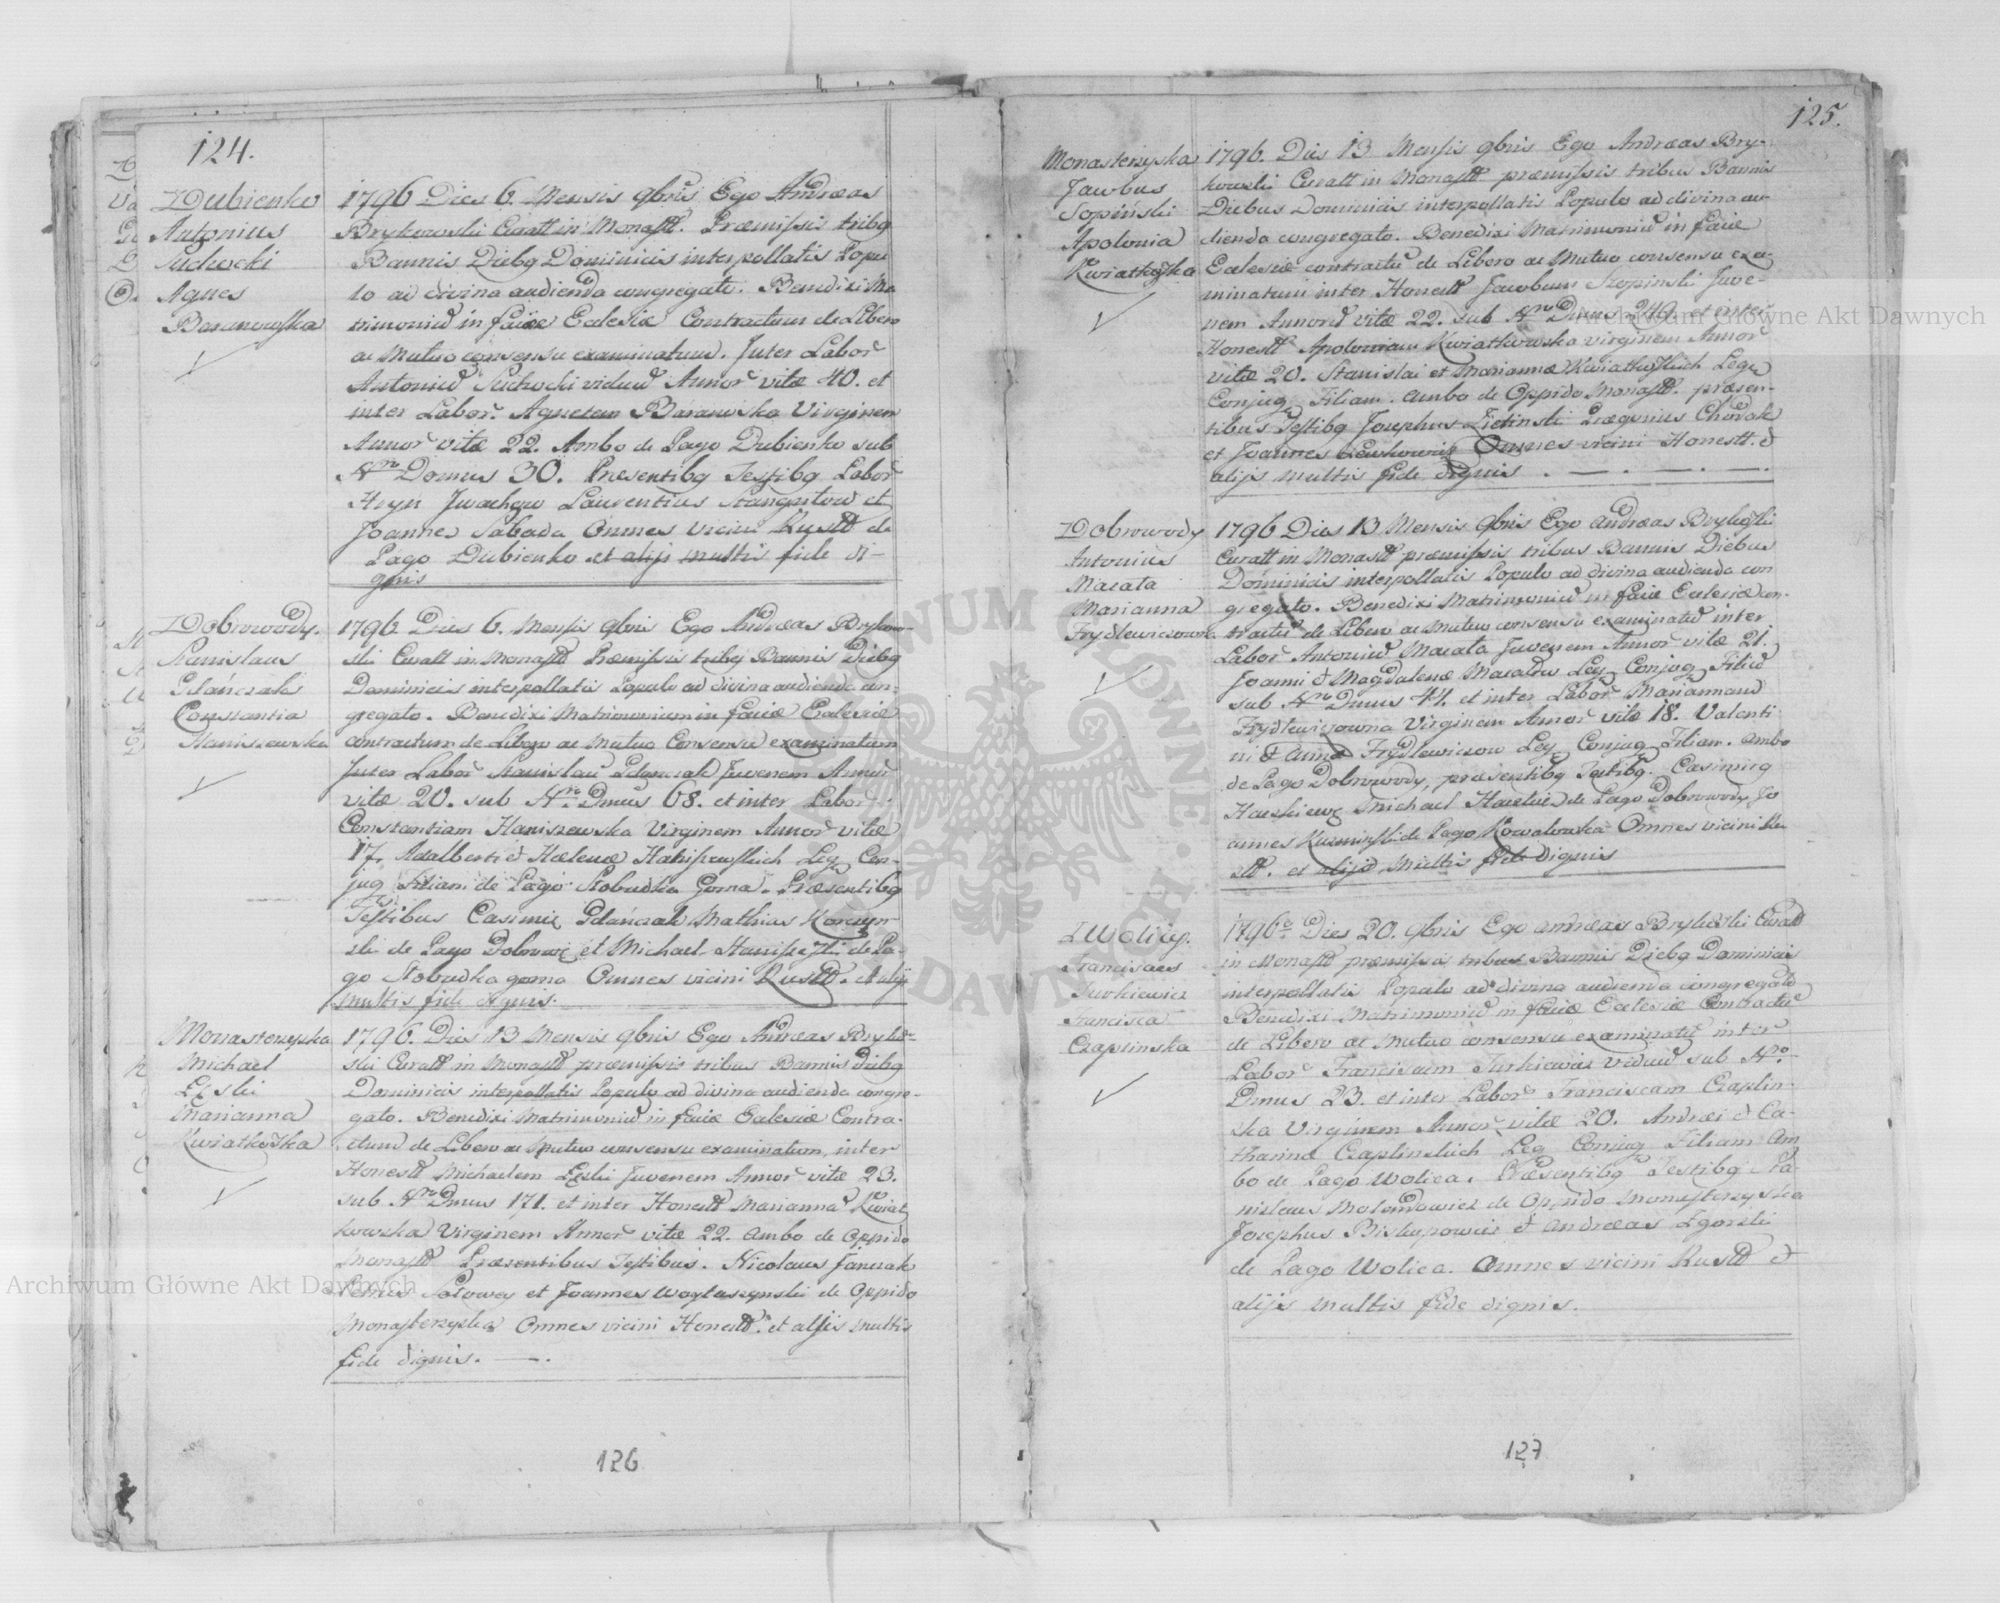 124.
ZDubienko
Antonius
Suchocki
Agnes
Baranowska
1796 Dies 6. Mensis 9bris Ego Andreas
Brykowski Curatt in Monastt. Præmissis tribq
Bannis Diebq Dominicis interpollatis Popu
lo ad divina audienda congregato. Benedixi Ma
trimoniu in faciæ Eclesiæ Contractum de Libero
ac Mutuo consensu examinatum. Inter Labor
Antoniu Suchocki viduu Annor vitæ 40. et
inter Labor. Agnetem Baranwska Virginem
Annor vitæ 22. Ambo de Pago Dubienko sub
Nro Domus 30. Præsentibq Testibq Labor
Hryn Iwachow Laurentius et
Joannes Sabada Omnes Vicini Rustt de
Pago Dubienko et alijs multis fide di-
gnis
ZDobrowody.
Stanislaus
Gdańczak
Constantia
Haniszewska
1796 Dies 6. Mensis 9bris Ego Andreas Brykow-
ski Curatt in Monastt Præmissis tribq Bannis Diebq
Dominicis interpollatis Populo ad divina audienda con-
gregato. Benedixi Matrimonium in faciæ Eclesiæ
contractum de Libero ac Mutuo Consensu examinatum
Inter Labor Stanislau Gdanczak Juvenem Annor
vitæ 20. sub Nro Dmus 68. et inter Labor
Constantiam Haniszewska Virginem Annor vitæ
17. Adalberti et Hælenæ Haniszewskich Leg Con-
jug Filiam de Pago Slobudka Gorna. Præsentibq
Testibus Casimir Gdańczak Mathias
ski de Pago Dobrowo et Michael Haniszewski de Pa-
go Slobudka gorna Omnes vicini Rustt. et alijs
multis fide dignis.
Monasterzyska
Michael
Marianna
Kwiatkowska
1796. Dies 13 Mensis 9bris Ego Andreas Brykow-
ski Curatt in Monastt præmissis tribus Bannis Diebq
Dominicis interpollatis Populo ad divina audienda congre-
gato. Benedixi Matrimoniu in faciæ Eclesiæ Contra-
ctum de Libero ac Mutuo consensu examinatum, inter
Honestt Michaelem Juvenem Annor vitæ 23.
sub Nro Dmus 171. et inter Honestt Marianna Kwiat
kowska Virginem Annor vitæ 22. Ambo de Oppido
Monastt Præsentibus Testibus. Nicolaus Janczak
Petrus Solowey et Joannes Woytaszynski de Oppido
Monasterzyska Omnes vicini Honestt. et alijs multis
fide dignis.
126
125.
Monasterzyska
Jacobus
Sopiński
Apolonia
Kwiatkowska
1796. Dies 13 Mensis 9bris Ego Andreas Bry-
kowski Curatt in Monastt præmissis tribus Bannis
Diebus Dominicis interpollatis Populo ad divina au-
dienda congregato. Benedixi Matrimoniu in faciæ
Eclesiæ contractu de Libero ac Mutuo consensu exa-
minatum inter Honestt Jacobum Szopinski Juve-
nem Annoru vitæ 22. sub Nro Dmus 249 et inter
Honestt Apoloniam Kwiatkowska virginem Annor
vitæ 20. Stanislai et Mariannæ Kwiatkowskich Leg
Conjug Filiam. Ambo de Oppido Monastt. præsen-
tibus Testibq Josephus Grzegorius Chudak
et Joannes Omnes vicini Honestt. et
alijs multis fide dignis
ZDobrowody
Antonius
Macała
Marianna
Frydlewiczowna
1796 Dies 13 Mensis 9bris Ego Andreas Brykowski
Curatt in Monastt præmissis tribus Bannis Diebus
Dominicis interpollatis Populo ad divina audienda con
gregato. Benedixi Matrimoniu in faciæ Eclesiæ con-
tractu de Libero ac Mutuo consensu examinatu inter
Labor Antoniu Macała Juvenem Annor vitæ 21.
Joanni et Magdalenæ Macałow Leg Conjug Filiu
sub Nro Dmus 44. et inter Labor Mariannam
Frydlewiczowna Virginem Annor vitæ 18. Valenti
ni et Annæ Frydlewiczow Leg Conjug Filiam. Ambo
de Pago Dobrowody, præsentibq Testibq. Casimirq
Michael de Pago Dobrowody Jo
annes de Pago Kowalowka Omnes vicini Ru
stt. et alijs Multis fide dignis
ZWolicy.
Franciscus
Turkiewicz
Francisca
Czaplinska
1796o Dies 20. 9bris Ego Andreas Brykowski Curatt
in Monastt præmissis tribus Bannis Diebq Dominicis
interpollatis Populo ad divina audienda congregato
Benedixi Matrimoniu in faciæ Eclesiæ Contractu
de Libero ac Mutuo consensu examinatu inter
Labor Franciscum Turkiewicz Viduu sub Nro
Dmus 23. et inter Labor Franciscam Czaplin-
ska Virginem Annor vitæ 20. Andreæ et Ca-
tharinæ Czaplinskich Leg Conjug Filiam Am
bo de Pago Wolica. Præsentibq Testibq Sta-
nislaus Molendowicz de Oppido Monasterzyska
Josephus Biskupowicz et Andreas Zgorski
de Pago Wolica. Omnes vicini Rustt et
alijs multis fide dignis.
127
ARCHIWUM GŁÓWNE AKT DAWNYCH
Archiwum Główne Akt Dawnych
Archiwum Główne Akt Dawnych